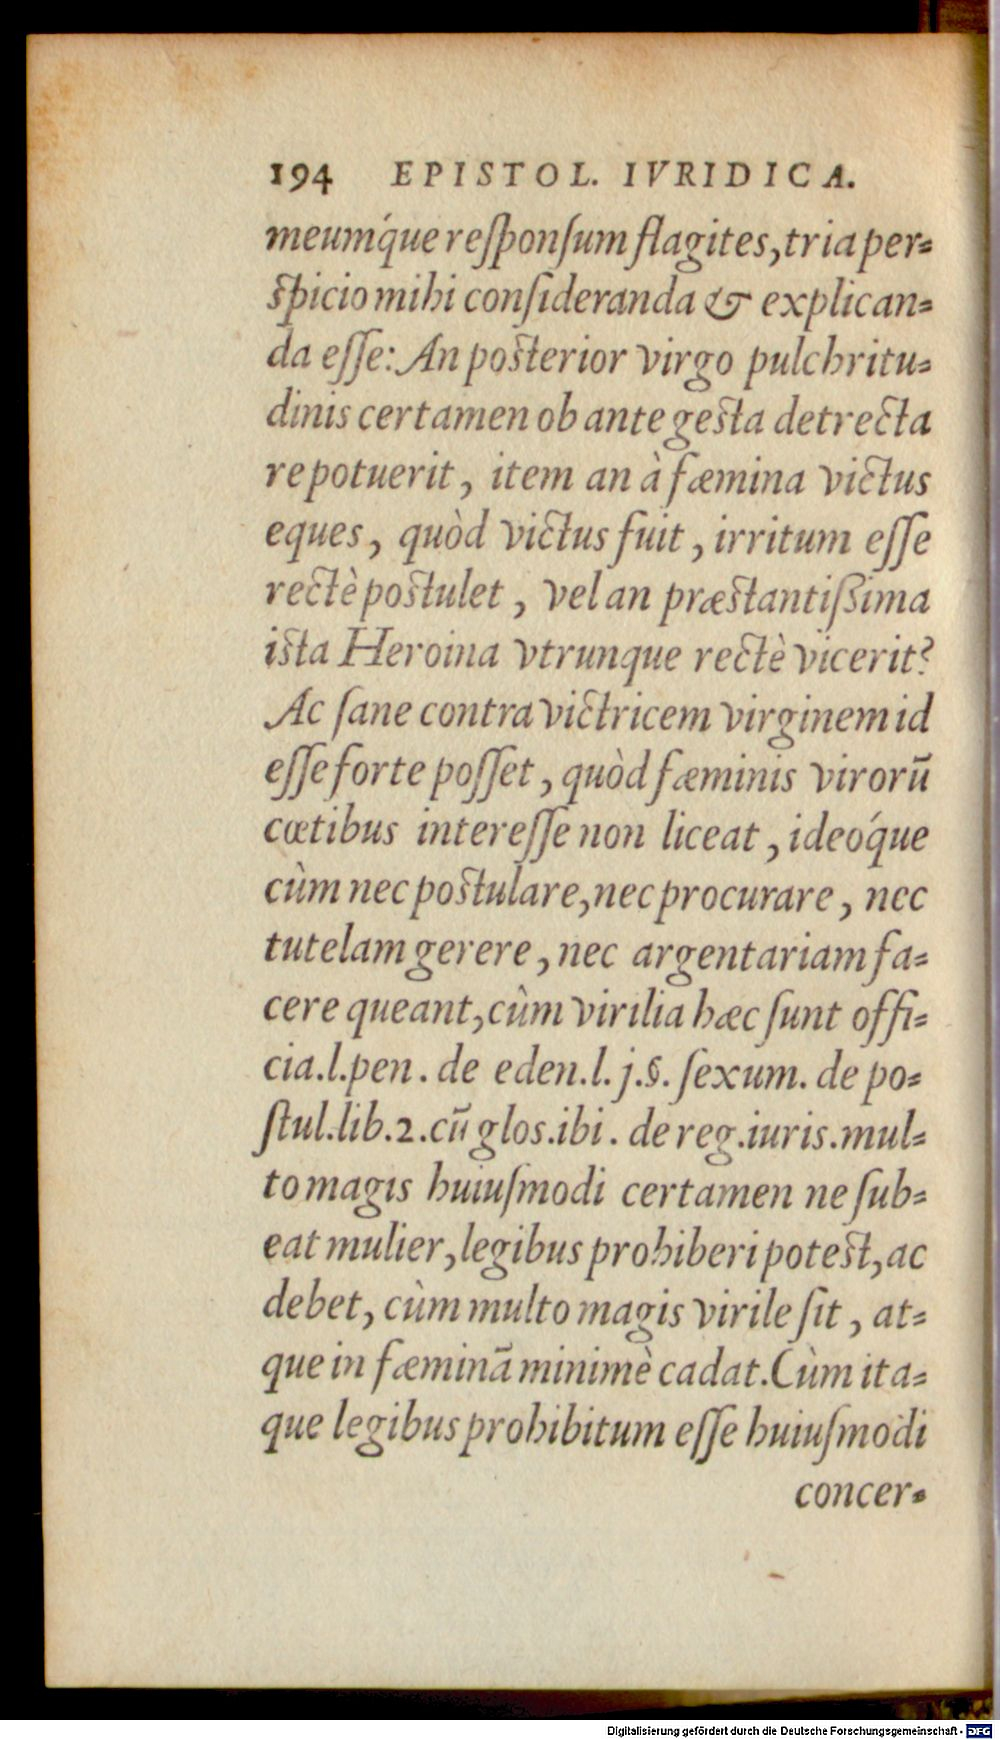 194 EPISTOL. IVRIDICA.
meumq́ue reſponſum flagites, tria per-
ſpicio mihi conſideranda & explican-
da eſſe: An poſterior virgo pulchritu-
dinis certamen ob ante geſta detrecta
re potuerit, item an à fæmina victus
eques, quòd victus fuit, irritum eſſe
rectè poſtulet, vel an præſtantiſsima
iſta Heroina vtrunque rectè vicerit?
Ac ſane contra victricem virginem id
eſſe forte poſſet, quòd fæminis virorū
cœtibus intereſſe non liceat, ideoq́ue
cùm nec poſtulare, nec procurare, nec
tutelam gerere, nec argentariam fa-
cere queant, cùm virilia hæc ſunt offi-
cia.l.pen. de eden.l.j.§. ſexum. de po-
ſtul.lib.2.cū glos.ibi. de reg.iuris.mul-
to magis huiuſmodi certamen ne ſub-
eat mulier, legibus prohiberi poteſt, ac
debet, cùm multo magis virile ſit, at-
que in fæminā minimè cadat. Cùm ita-
que legibus prohibitum eſſe huiuſmodi
concer-
Digitalisierung gefördert durch die Deutsche Forschungsgemeinschaft - DFG